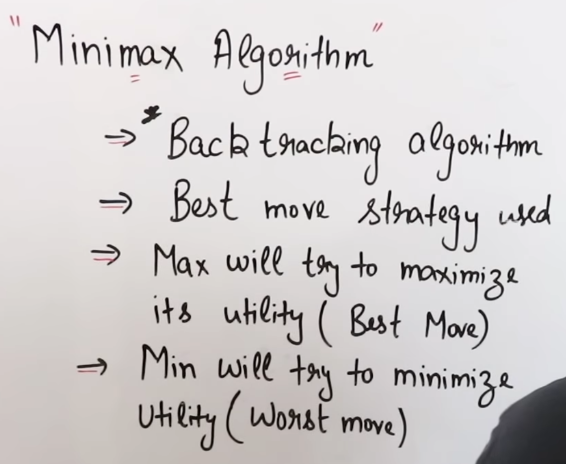 "Minimax Algorithm"
⇒ * Backtracking algorithm
⇒ Best move strategy used
⇒ Max will try to maximize
its utility ( Best Move)
⇒ Min will try to minimize
Utility ( Worst move)